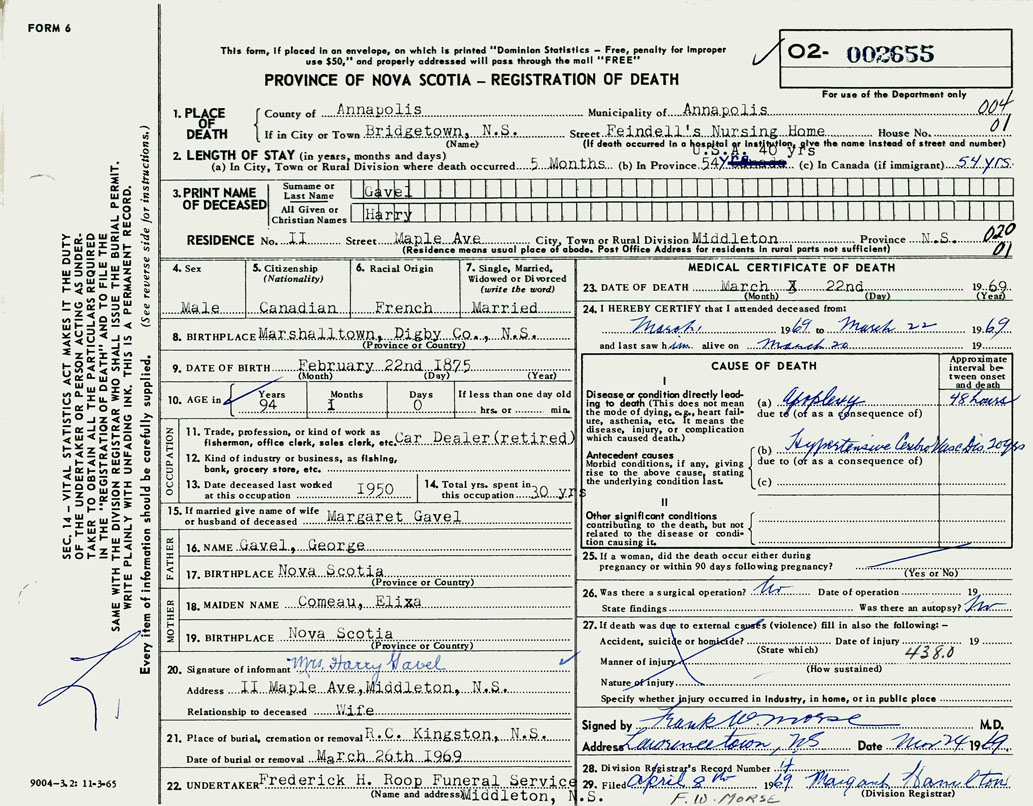 FORM 6
This form, if placed in an envelope, on which is printed "Dominion Statistics – Free, penalty for improper
use $50," and properly addressed will pass through the mail "FREE"
O2- 002655
PROVINCE OF NOVA SCOTIA – REGISTRATION OF DEATH
For use of the Department only
SEC. 14 – VITAL STATISTICS ACT MAKES IT THE DUTY
OF THE UNDERTAKER OR PERSON ACTING AS UNDER-
TAKER TO OBTAIN ALL THE PARTICULARS REQUIRED
IN THE "REGISTRATION OF DEATH" AND TO FILE THE
SAME WITH THE DIVISION REGISTRAR WHO SHALL ISSUE THE BURIAL PERMIT.
WRITE PLAINLY WITH UNFADING INK. THIS IS A PERMANENT RECORD.
Every item of information should be carefully supplied. (See reverse side for instructions.)
1. PLACE OF DEATH
County of Annapolis Municipality of Annapolis 004
If in City or Town Bridgetown, N.S. Street Feindell's Nursing Home House No. 01
(Name) (If death occurred in a hospital or institution, give the name instead of street and number)
U.S.A. 40 yrs
2. LENGTH OF STAY (in years, months and days)
(a) In City, Town or Rural Division where death occurred 5 Months (b) In Province 54 yrs (c) In Canada (if immigrant) 54 yrs.
3. PRINT NAME OF DECEASED
Surname or Last Name Gavel
All Given or Christian Names Harry
RESIDENCE No. II Street Maple Ave City, Town or Rural Division Middleton Province N.S. 020
(Residence means usual place of abode. Post Office Address for residents in rural parts not sufficient) 01
4. Sex
Male
5. Citizenship (Nationality)
Canadian
6. Racial Origin
French
7. Single, Married, Widowed or Divorced (write the word)
Married
8. BIRTHPLACE Marshalltown, Digby Co., N.S.
(Province or Country)
9. DATE OF BIRTH February 22nd 1875
(Month) (Day) (Year)
10. AGE in Years Months Days If less than one day old
94 1 0 hrs. or min.
OCCUPATION
11. Trade, profession, or kind of work as
fisherman, office clerk, sales clerk, etc. Car Dealer(retired)
12. Kind of industry or business, as fishing,
bank, grocery store, etc.
13. Date deceased last worked at this occupation 1950
14. Total yrs. spent in this occupation 30 yrs
15. If married give name of wife or husband of deceased Margaret Gavel
FATHER
16. NAME Gavel, George
17. BIRTHPLACE Nova Scotia
(Province or Country)
MOTHER
18. MAIDEN NAME Comeau, Eliza
19. BIRTHPLACE Nova Scotia
(Province or Country)
20. Signature of informant Mrs. Harry Gavel
Address II Maple Ave,Middleton, N.S.
Relationship to deceased Wife
21. Place of burial, cremation or removal R.C. Kingston, N.S.
Date of burial or removal March 26th 1969
22. UNDERTAKER Frederick H. Roop Funeral Service
(Name and address) Middleton, N.S.
9004-3.2: 11-3-65
MEDICAL CERTIFICATE OF DEATH
23. DATE OF DEATH March 22nd 1969
(Month) (Day) (Year)
24. I HEREBY CERTIFY that I attended deceased from:
March, 1969 to March 22 1969
and last saw him alive on March 20 19
CAUSE OF DEATH
Approximate interval between onset and death
I
Disease or condition directly lead-
ing to death (This does not mean
the mode of dying, e.g., heart fail-
ure, asthenia, etc. It means the
disease, injury, or complication
which caused death.)
(a) Apoplexy 48 hours
due to (or as a consequence of)
Antecedent causes
Morbid conditions, if any, giving
rise to the above cause, stating
the underlying condition last.
(b) Hypertensive Cerebro Vasc Dis. 20 yrs
due to (or as a consequence of)
(c)
II
Other significant conditions
contributing to the death, but not
related to the disease or condi-
tion causing it.
25. If a woman, did the death occur either during
pregnancy or within 90 days following pregnancy?
(Yes or No)
26. Was there a surgical operation? No Date of operation 19
State findings Was there an autopsy? No
27. If death was due to external causes (violence) fill in also the following: –
Accident, suicide or homicide? Date of injury 19
(State which) 438.0
Manner of injury
(How sustained)
Nature of injury
Specify whether injury occurred in industry, in home, or in public place
Signed by Frank W. Morse M.D.
Address Lawrencetown, NS Date Mar 24 1969.
28. Division Registrar's Record Number
29. Filed April 8th 1969 Margaret Hamilton
(Division Registrar)
F. W. MORSE